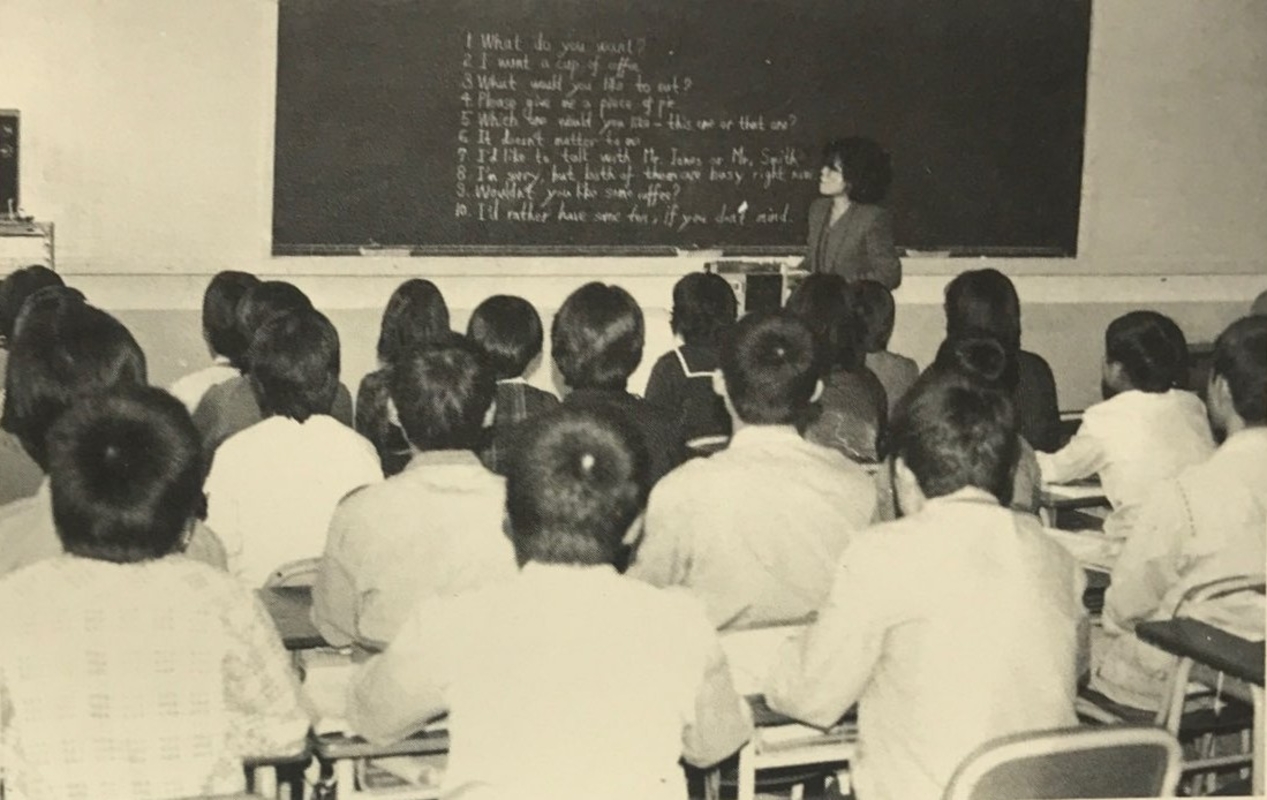 1 What do you want?
2 I want a cup of coffee
3 What would you like to eat?
4 Please give me a piece of pie.
5 Which one would you like - this one or that one?
6 It doesn't matter to me
7 I'd like to talk with Mr. Jones or Mr. Smith
8. I'm sorry, but both of them are busy right now
9. Wouldn't you like some coffee?
10. I'd rather have some tea, if you don't mind.